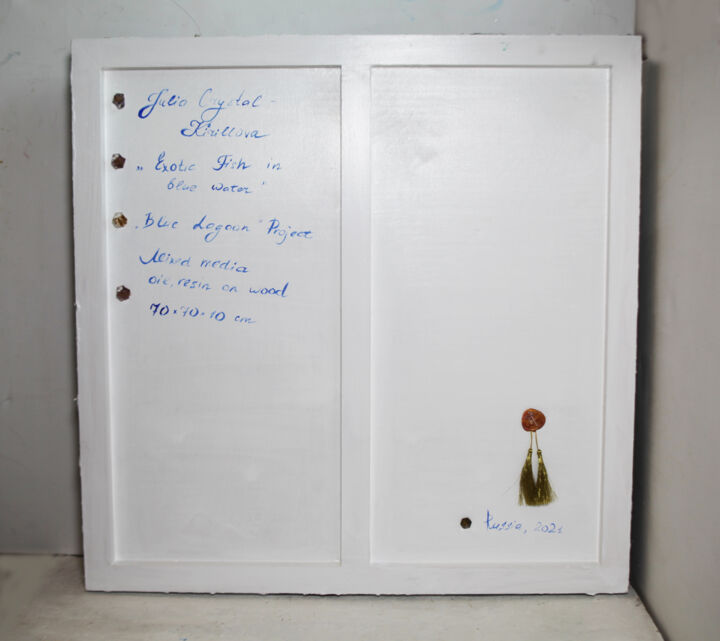 Julia Crystal -
Kirillova
„Exotic Fish in
blue water"
„Blue Lagoon" Project
Mixed media
oil, resin on wood
70×70×10 cm
Russia, 2021